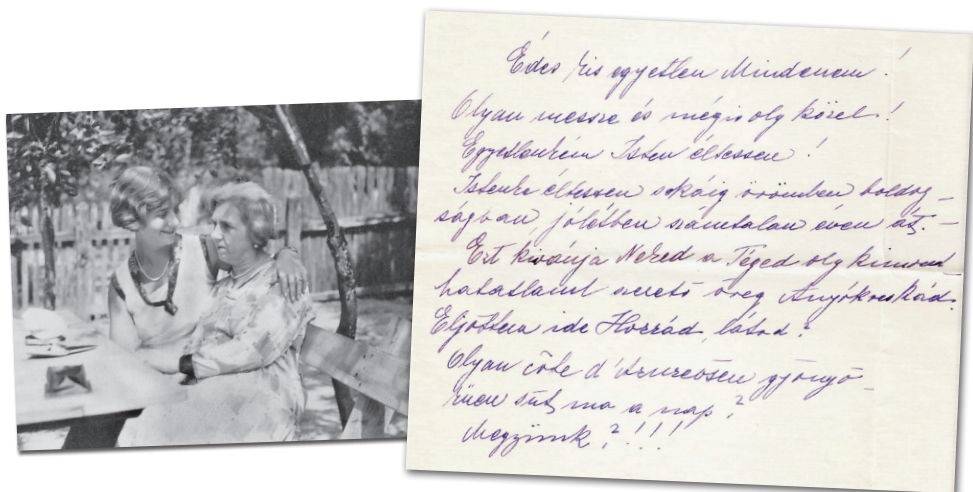 Édes kis egyetlen Mindenem!
Olyan messze és mégis oly közel!
Egyetlenkém Isten éltessen!
Istenke éltessen sokáig örömben boldog-
ságban, jólétben számtalan éven át. –
Ezt kivánja Neked a Téged oly kimond
hatatlanul szerető öreg Anyókocskád.
Eljöttem ide Hozzád, látod?
Olyan côte d'Azureosen gyönyö-
rűen süt ma a nap?
Megyünk?!!!